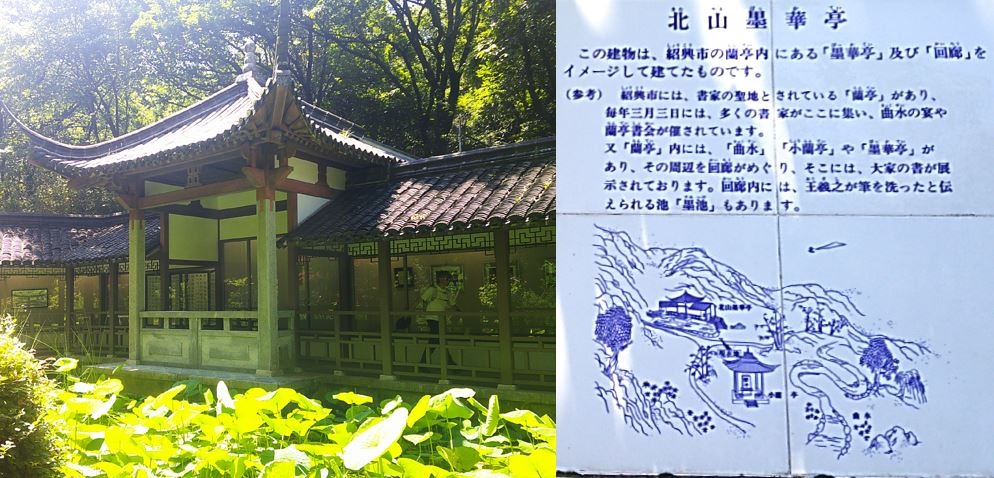 北山墨華亭
この建物は、紹興市の蘭亭内にある「墨華亭」及び「回廊」を
イメージして建てたものです。
(参考) 紹興市には、書家の聖地とされている「蘭亭」があり、
毎年三月三日には、多くの書家がここに集い、曲水の宴や
蘭亭書会が催されています。
又「蘭亭」内には、「曲水」「小蘭亭」や「墨華亭」が
あり、その周辺を回廊がめぐり、そこには、大家の書が展
示されております。回廊内には、王羲之が筆を洗ったと伝
えられる池「墨池」もあります。
北山墨華亭
小蘭亭
曲水